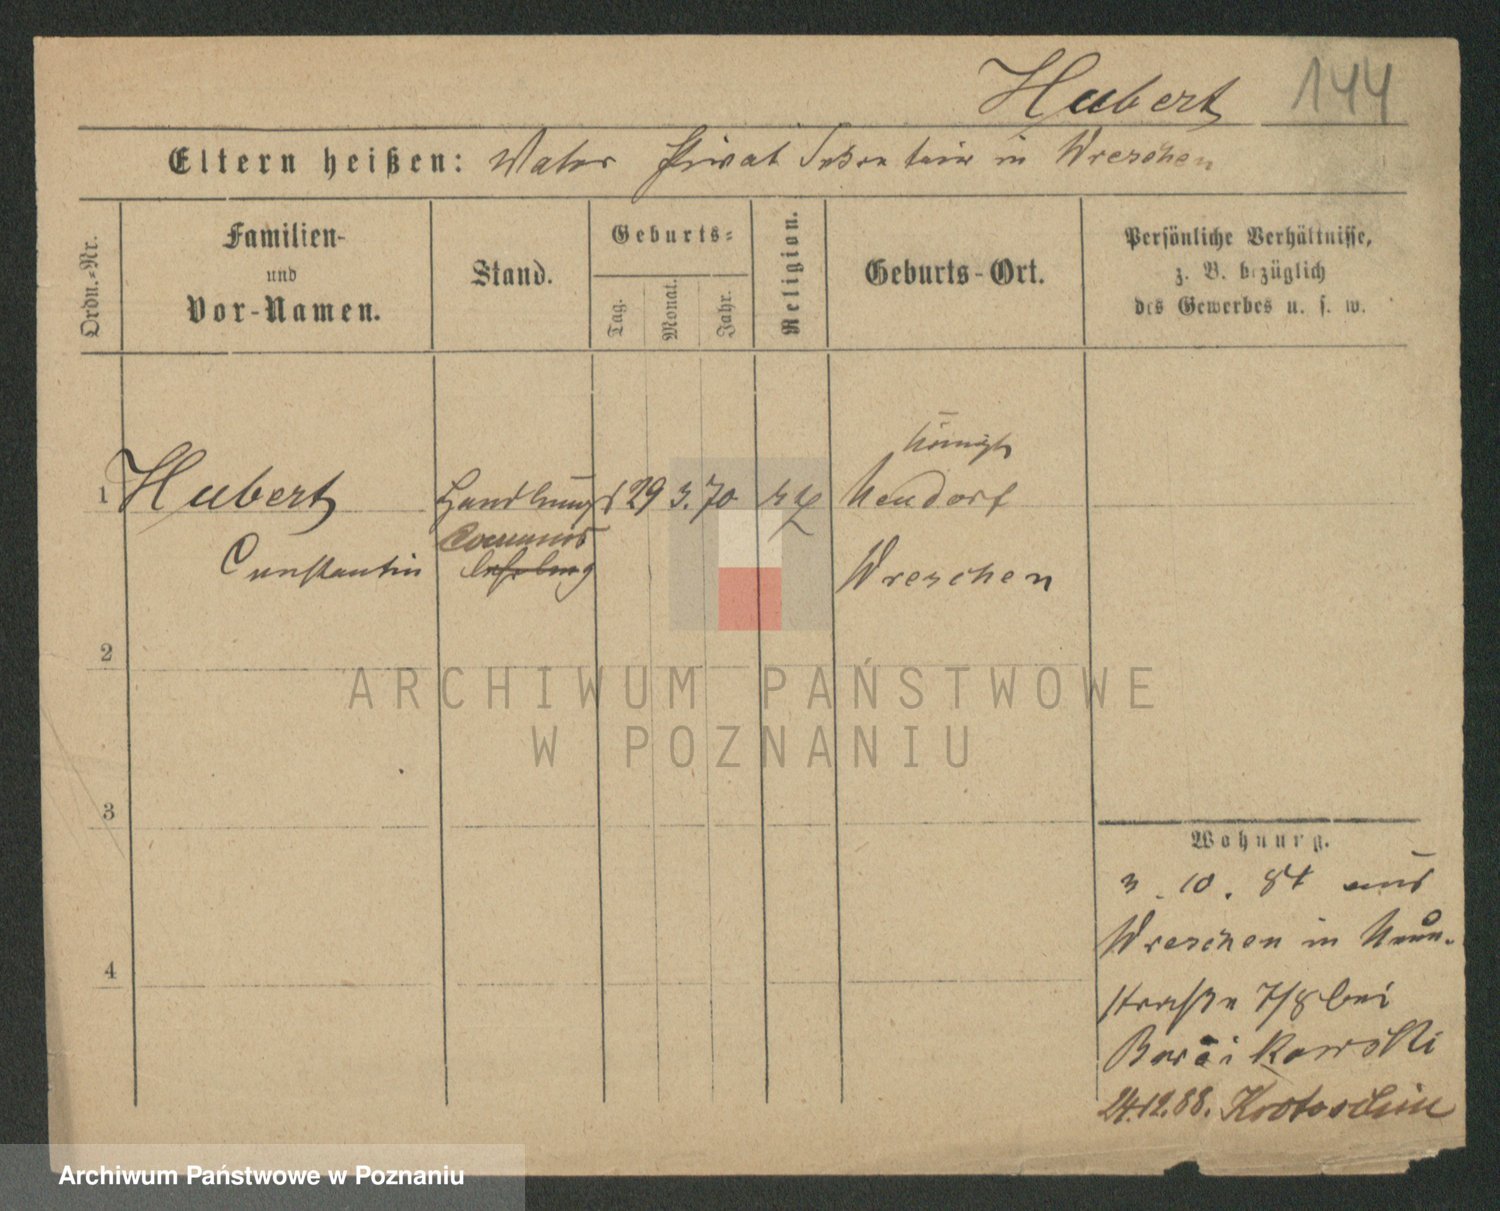 Hubert 144
Eltern heißen: Vater Privat Sekretair in Wreschen
Ordn.-Nr.
Familien-
und
Vor-Namen.
Stand.
Geburts-
Tag.
Monat.
Jahr.
Religion.
Geburts-Ort.
Persönliche Verhältnisse,
z. B. bezüglich
des Gewerbes u. s. w.
Königl
1 Hubert Handlungs 29 3. 70 Neudorf
Commis
Constantin Lehrling Wreschen
2
3
4
Wohnung.
3. 10. 84 aus
Wreschen in
straße 7/8 bei
24.12.88. Krotoschin
ARCHIWUM PAŃSTWOWE
W POZNANIU
Archiwum Państwowe w Poznaniu